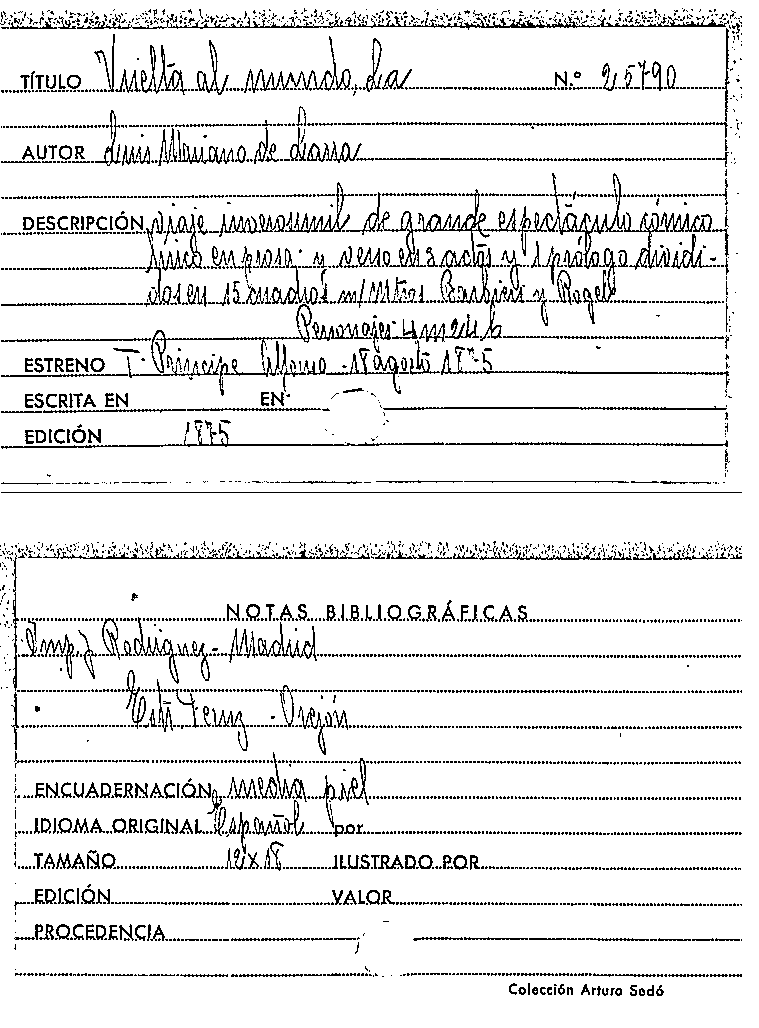 TÍTULO Vuelta al mundo, La N.º 25790
AUTOR Luis Mariano de Larra
DESCRIPCIÓN viaje inverosimil de grande espectáculo cómico
lírico en prosa y verso en 3 actos y 1 prólogo dividi-
dos en 15 cuadros m/Mtros Barbieri y Rogel
Personajes 4 m 24 h
ESTRENO T. Principe Alfonso - 18 agosto 1875
ESCRITA EN EN
EDICIÓN 1875
NOTAS BIBLIOGRÁFICAS
Imp. J Rodriguez - Madrid
Orejón
ENCUADERNACIÓN media piel
IDIOMA ORIGINAL Español por
TAMAÑO 12 x 18 ILUSTRADO POR
EDICIÓN VALOR
PROCEDENCIA
Colección Arturo Sedó